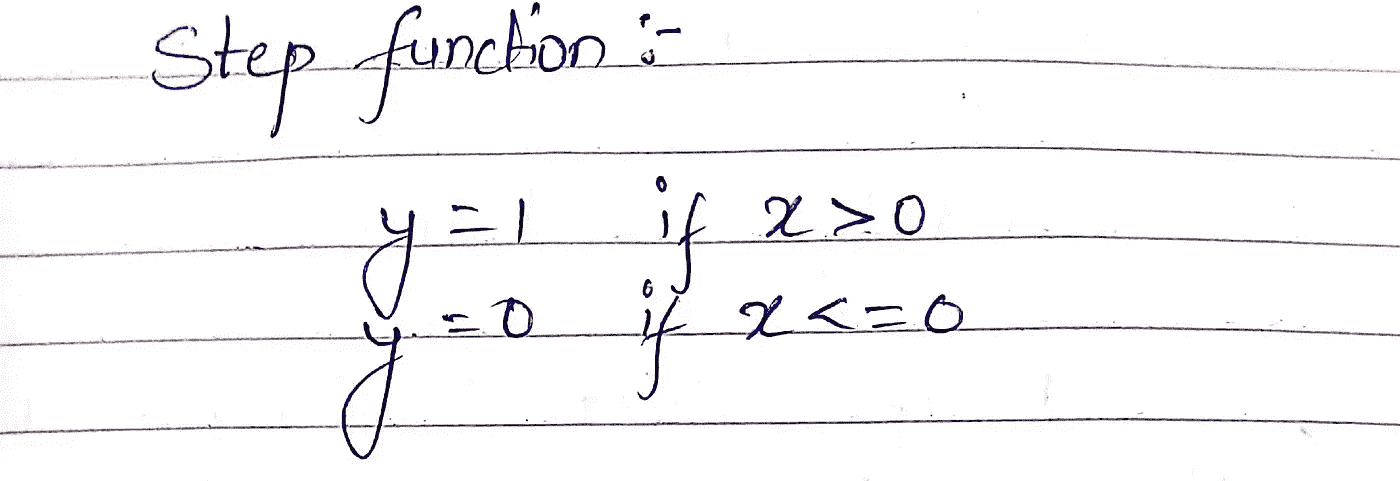 Step function :-
y = 1 if x > 0
y = 0 if x <= 0